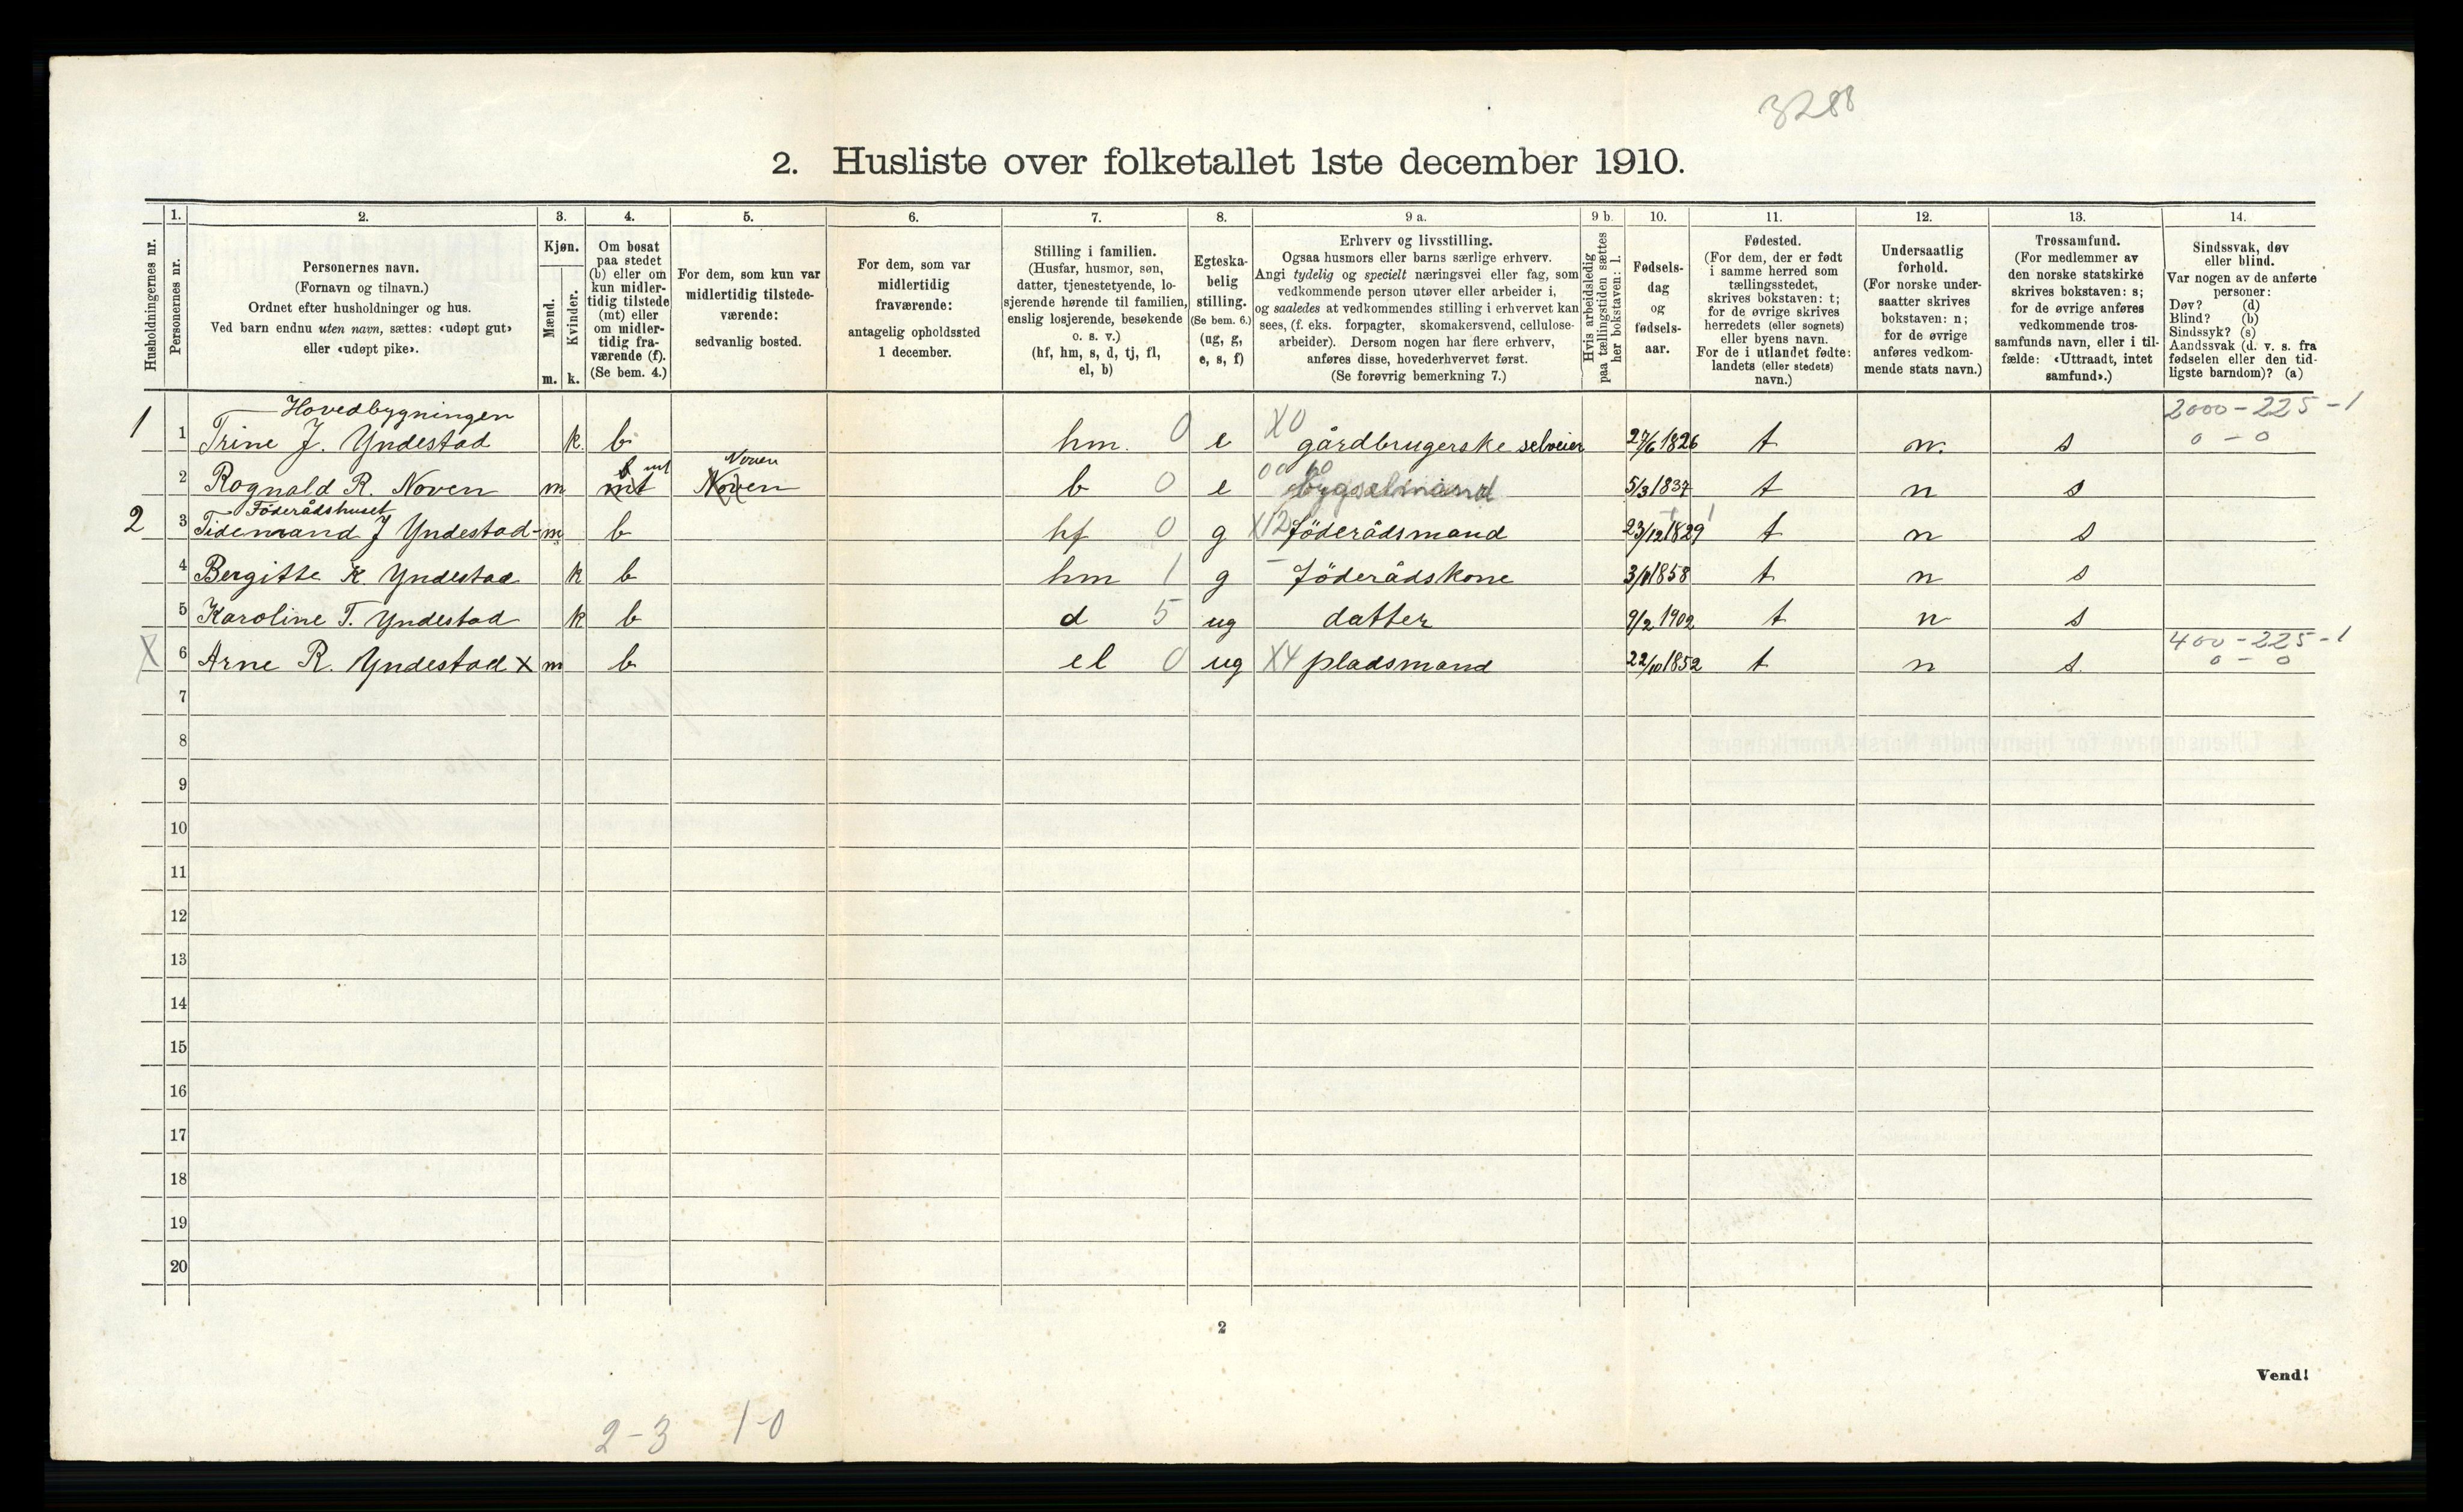 3288
2. Husliste over folketallet 1ste december 1910.
1. 2. 3. 4. 5. 6. 7. 8. 9 a. 9 b. 10. 11. 12. 13. 14.
Husholdningernes nr.
Personernes nr.
Personernes navn.
(Fornavn og tilnavn.)
Ordnet efter husholdninger og hus.
Ved barn endnu uten navn, sættes: «udøpt gut»
eller «udøpt pike».
Kjøn.
Mænd.
Kvinder.
m. k.
Om bosat
paa stedet
(b) eller om
kun midler-
tidig tilstede
(mt) eller
om midler-
tidig fra-
værende (f).
(Se bem. 4.)
For dem, som kun var
midlertidig tilstede-
værende:
sedvanlig bosted.
For dem, som var
midlertidig
fraværende:
antagelig opholdssted
1 december.
Stilling i familien.
(Husfar, husmor, søn,
datter, tjenestetyende, lo-
sjerende hørende til familien,
enslig losjerende, besøkende
o. s. v.)
(hf, hm, s, d, tj, fl,
el, b)
Egteska-
belig
stilling.
(Se bem. 6.)
(ug, g,
e, s, f)
Erhverv og livsstilling.
Ogsaa husmors eller barns særlige erhverv.
Angi tydelig og specielt næringsvei eller fag, som
vedkommende person utøver eller arbeider i,
og saaledes at vedkommendes stilling i erhvervet kan
sees, (f. eks. forpagter, skomakersvend, cellulose-
arbeider). Dersom nogen har flere erhverv,
anføres disse, hovederhvervet først.
(Se forøvrig bemerkning 7.)
Hvis arbeidsledig
paa tællingstiden sættes
her bokstaven: l.
Fødsels-
dag
og
fødsels-
aar.
Fødested.
(For dem, der er født
i samme herred som
tællingsstedet,
skrives bokstaven: t;
for de øvrige skrives
herredets (eller sognets)
eller byens navn.
For de i utlandet fødte:
landets (eller stedets)
navn.)
Undersaatlig
forhold.
(For norske under-
saatter skrives
bokstaven: n;
for de øvrige
anføres vedkom-
mende stats navn.)
Trossamfund.
(For medlemmer av
den norske statskirke
skrives bokstaven: s;
for de øvrige anføres
vedkommende tros-
samfunds navn, eller i til-
fælde: «Uttraadt, intet
samfund».)
Sindssvak, døv
eller blind.
Var nogen av de anførte
personer:
Døv? (d)
Blind? (b)
Sindssyk? (s)
Aandssvak (d. v. s. fra
fødselen eller den tid-
ligste barndom)? (a)
Hovedbygningen 2000-225-1
1 1 Trine J. Yndestad k. b. hm. 0 e X0 gårdbrugerske selveier 27/6 1826 t n. s 0-0
b mt Noven
2 Rognald R. Noven m mt Noven b 0 e 00 bygselmand 5/3 1837 t n s
Föderådshuset
2 3 Tidemand J Yndestad- m b hf 0 g X12 föderådsmand 23/12 1829 t n s
4 Bergitte K. Yndestad k b hm 1 g - föderådskone 1858 t n s
5 Karoline T. Yndestad k b d 5 ug datter 9/2 1902 t n s
400-225-1
X 6 Arne R. Yndestad x m b el 0 ug X4 pladsmand 22/10 1852 t n s. 0-0
7
8
9
10
11
12
13
14
15
16
17
18
19
20
2
Vend!
2-3 1-0